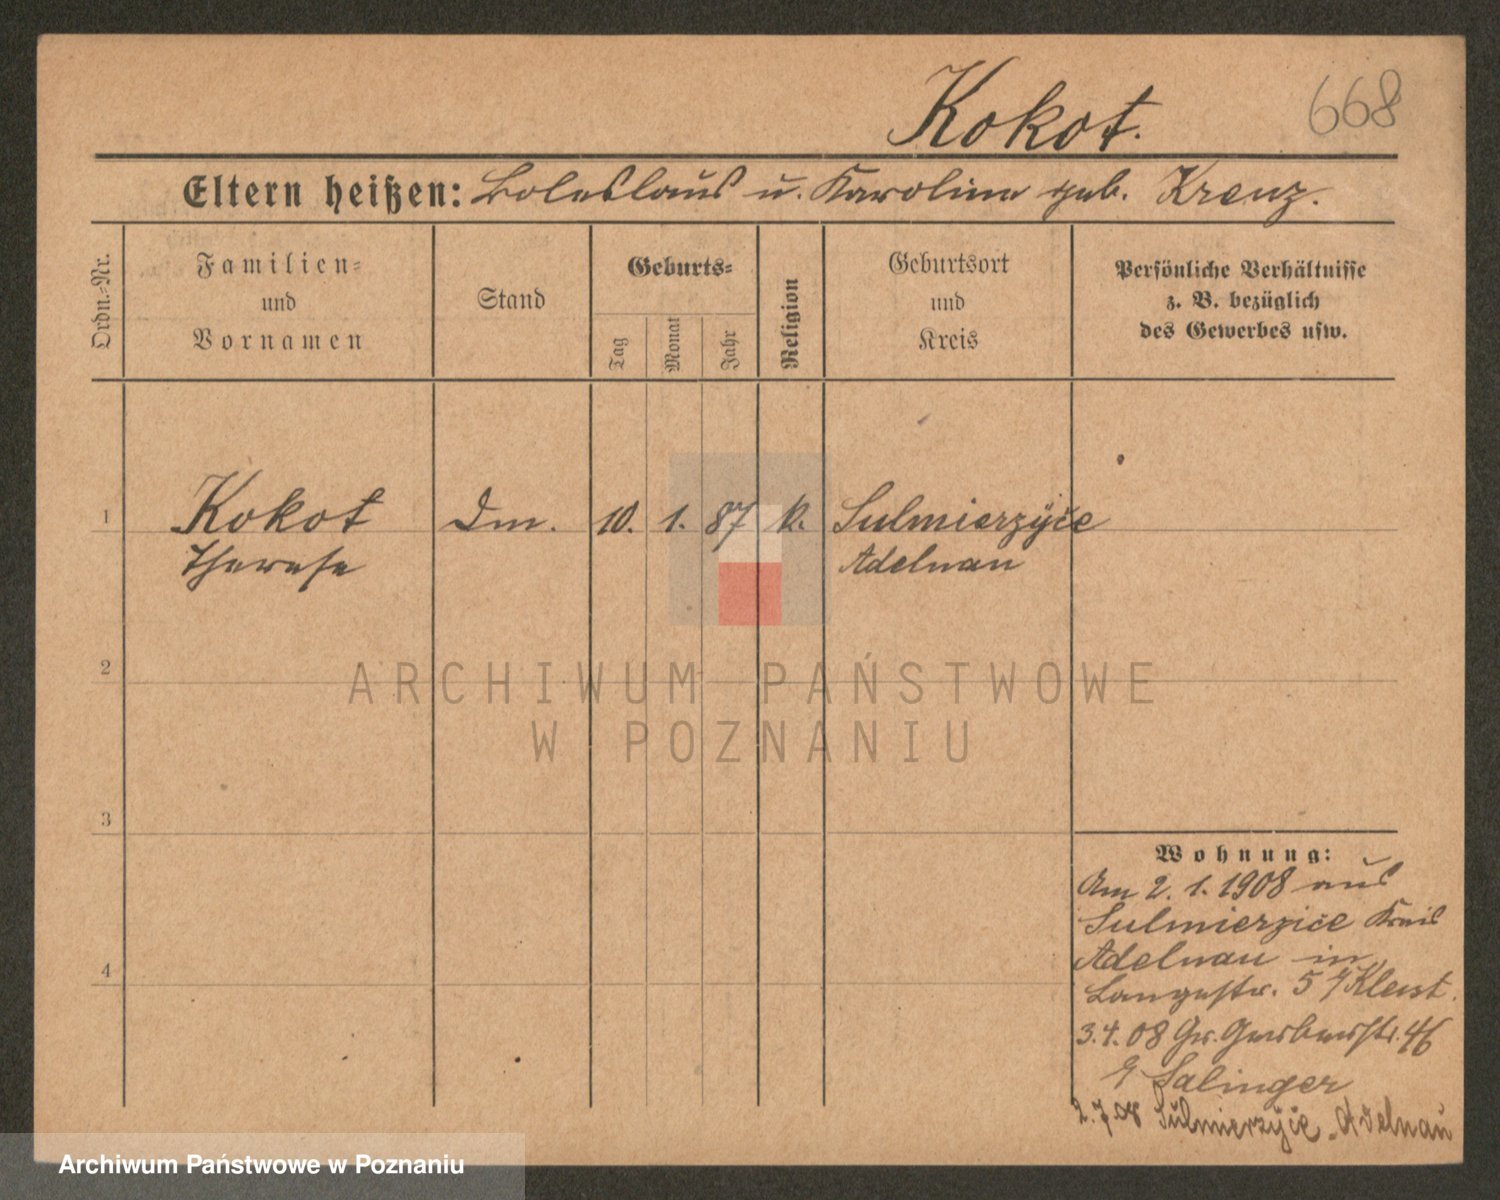 Kokot.
668
Eltern heißen: Boleslaus u. Karolina geb. Krenz.
Ordn.-Nr.
Familien-
und
Vornamen
Stand
Geburts-
Tag
Monat
Jahr
Religion
Geburtsort
und
Kreis
Persönliche Verhältnisse
z. B. bezüglich
des Gewerbes usw.
1
Kokot Dm. 10. 1. 87 k. Sulmierzÿce
Therese Adelnau
2
ARCHIWUM PAŃSTWOWE
W POZNANIU
3
4
Wohnung:
Am 2.1.1908 aus
Sulmierzice Kreis
Adelnau in
Langestr. 5 Kleist.
3.4.08 Gr. Gerberstr. 46
Salinger
2.7.08 Sulmierzÿce. Adelnau
Archiwum Państwowe w Poznaniu